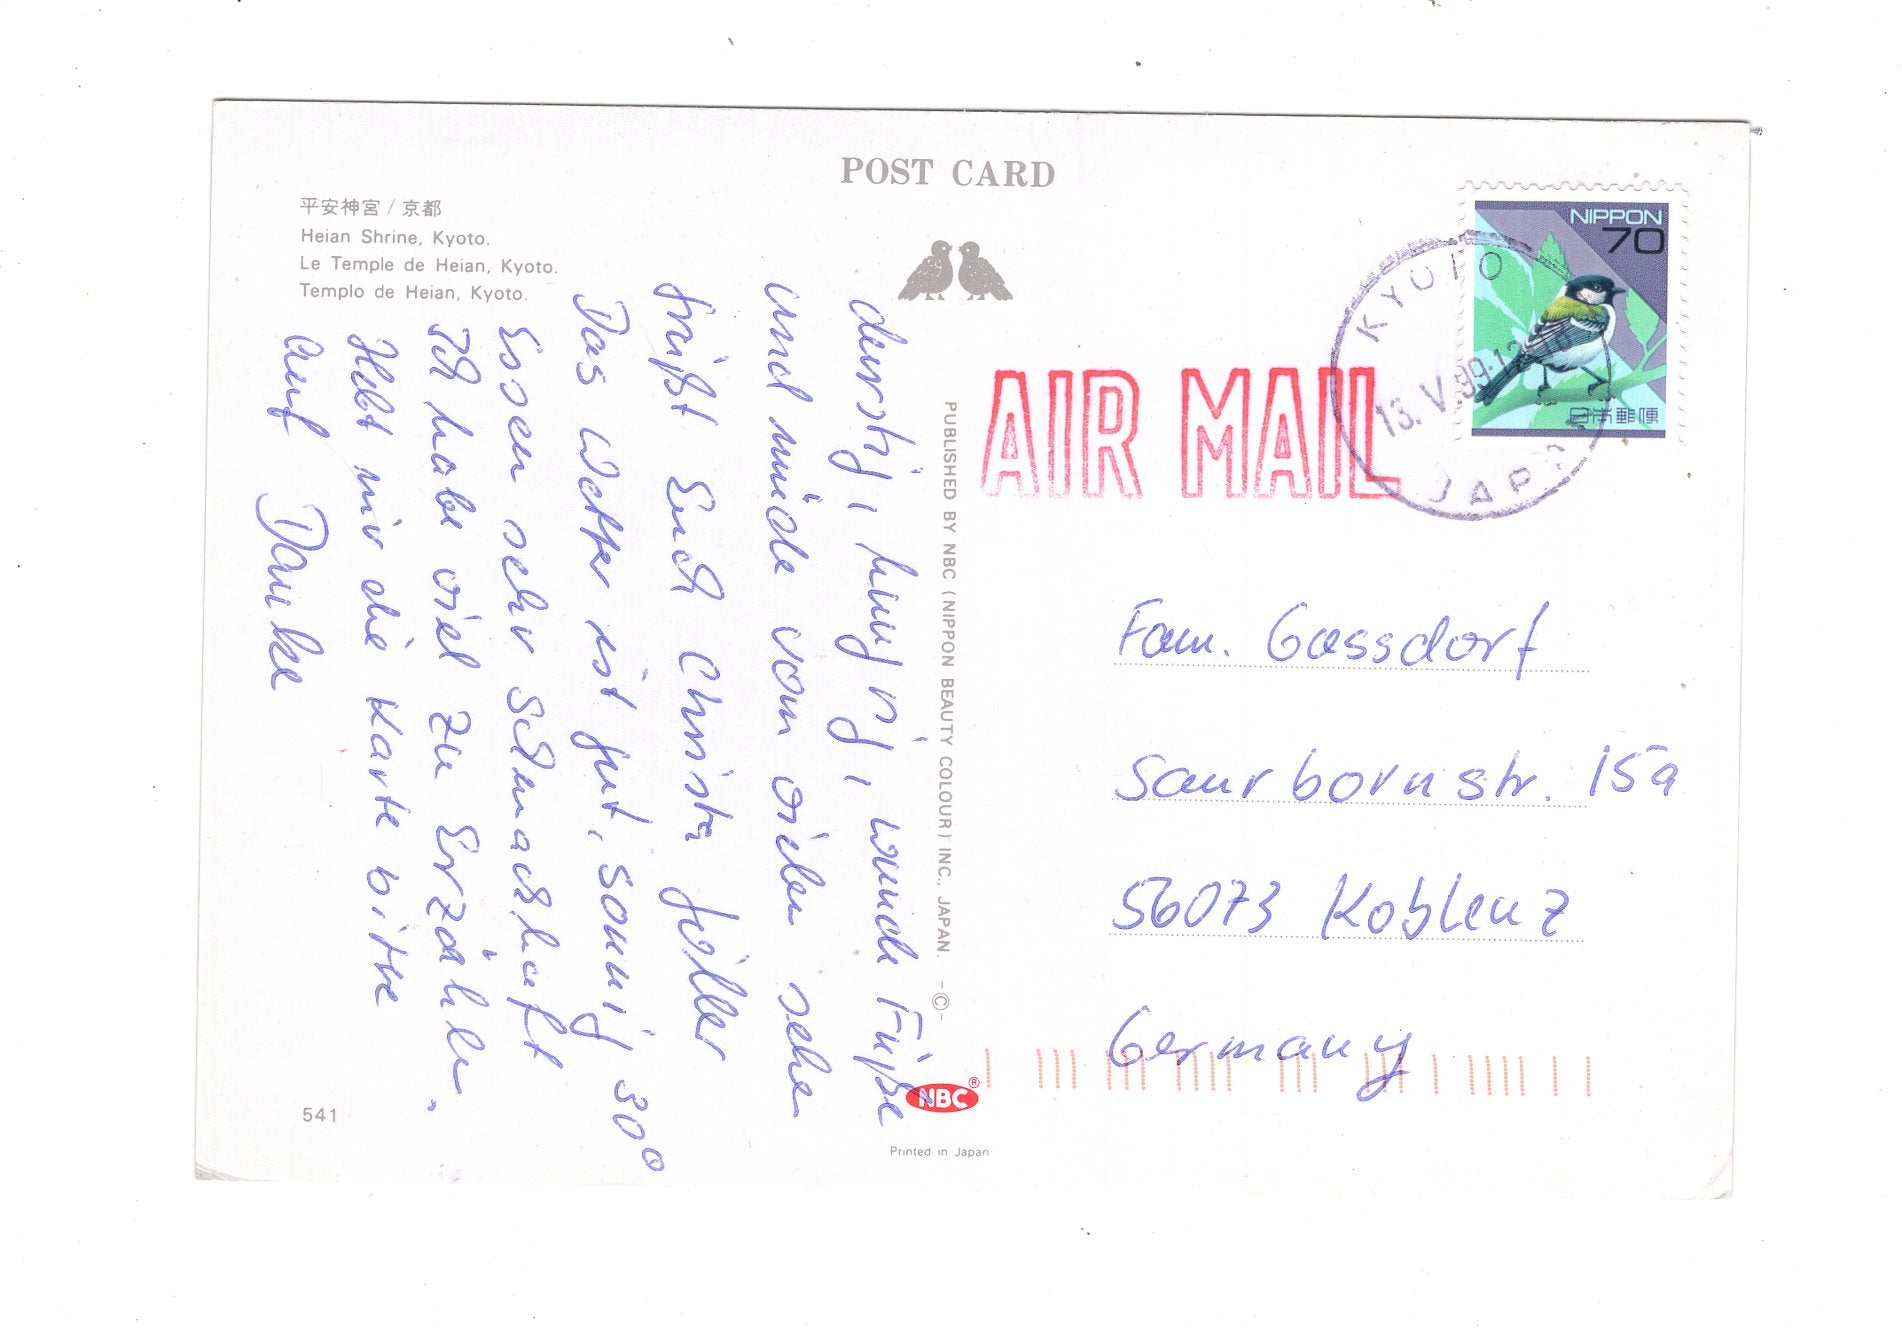 POST CARD
平安神宮 / 京都
Heian Shrine, Kyoto.
Le Temple de Heian, Kyoto.
Templo de Heian, Kyoto.
durstig, hungrig, wunde Füße
und müde vom vielen sehen
grüßt Euch Christa
Das Wetter ist gut, sonnig, 30°
Essen sehr schmackhaft
Ich habe viel zu Erzählen.
Hebt mir die Karte bitte
auf Danke
541
PUBLISHED BY NBC (NIPPON BEAUTY COLOUR) INC., JAPAN. -©-
NBC®
Printed in Japan
AIR MAIL
NIPPON
70
日本郵便
KYOTO
13. V. 99. 12
JAPA
Fam. Gassdorf
Saurbornstr. 15a
56073 Koblenz
Germany